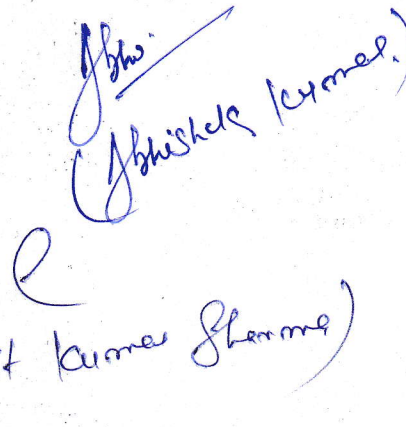 Abhi.
(Abhishek Kumar.)
t Kumar Sharma)